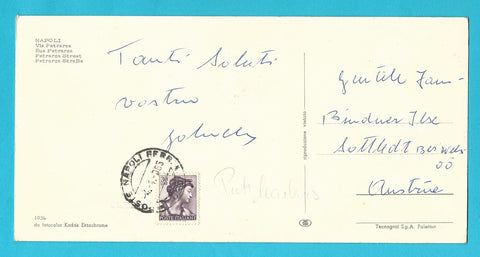 NAPOLI
Via Petrarca
Rue Petrarca
Petrarca Street
Petrarca Straße
Tanti Saluti
vostro
Gentile Fam.
Bindner Ilse
bei Wels
OÖ
Austria
riproduzione vietata
POSTE NAPOLI FERR.
POSTE ITALIANE
1036
da fotocolor Kodak Ektachrome
Tecnograf S.p.A.